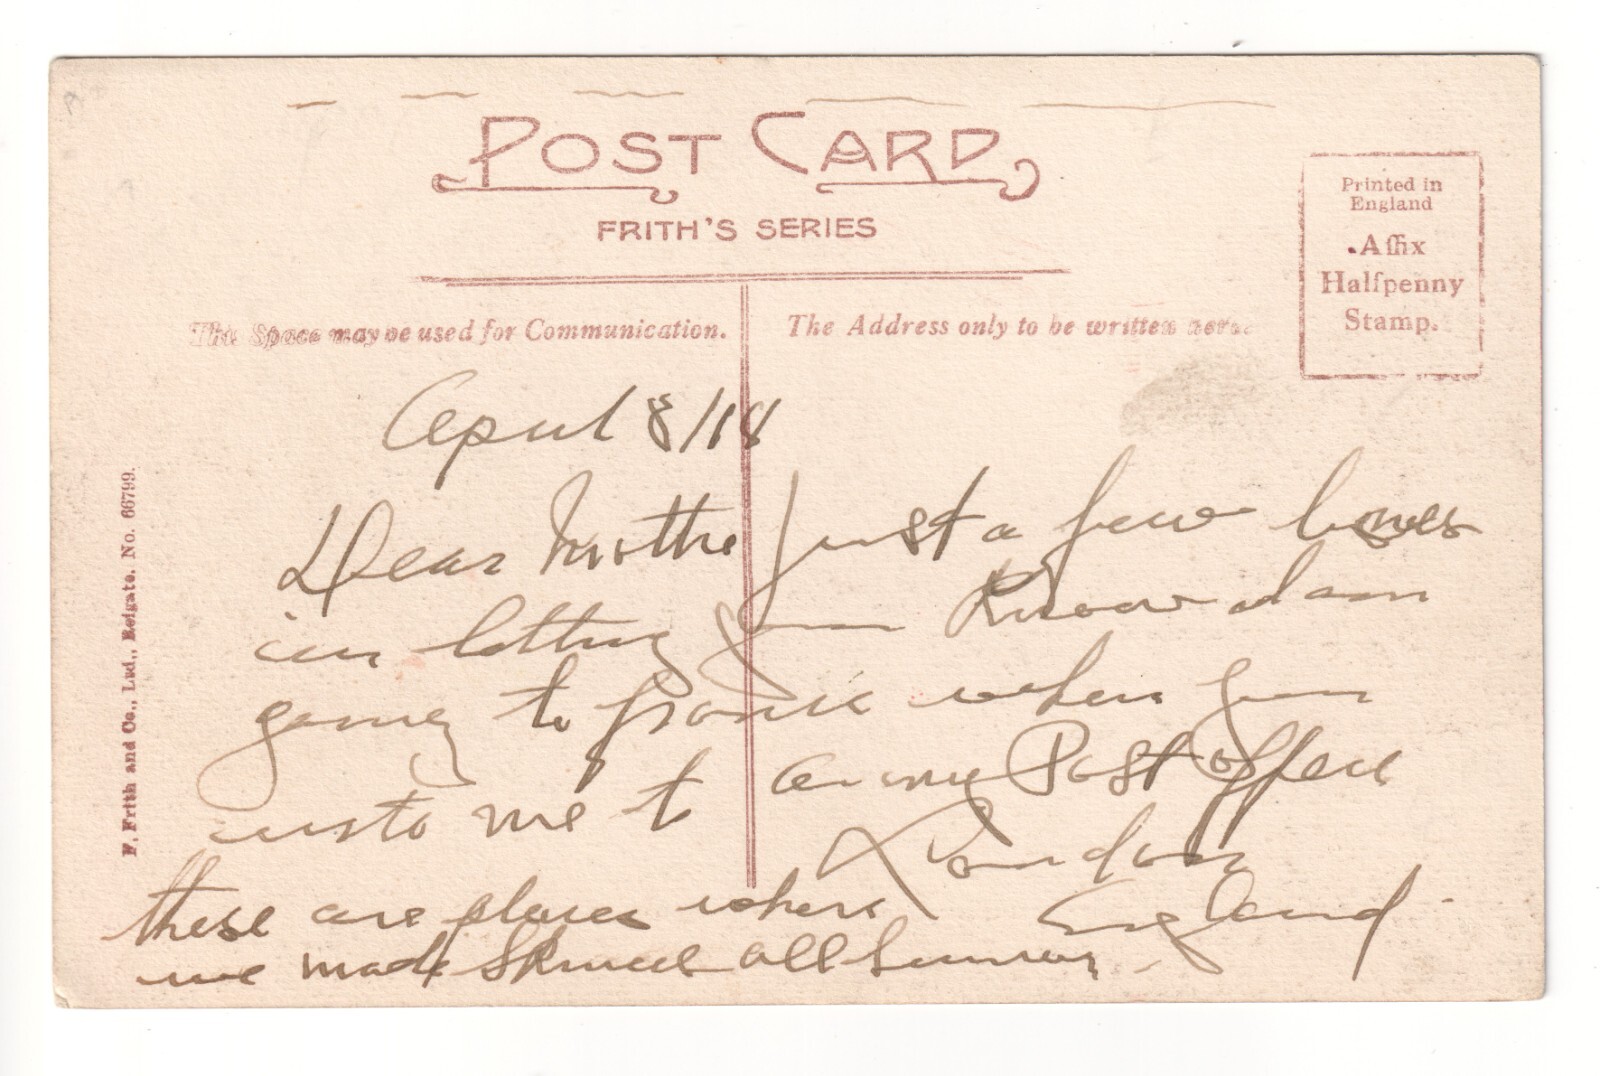 POST CARD
FRITH'S SERIES
Printed in
England
Affix
Halfpenny
Stamp.
This Space may be used for Communication.
The Address only to be written here.
F. Frith and Co., Ltd., Reigate. No. 66799.
April 8/18
Dear Mother Just a few lines
in letting you Know I am
going to france when you
me to army Post Office
London
England
these are places where
we made all